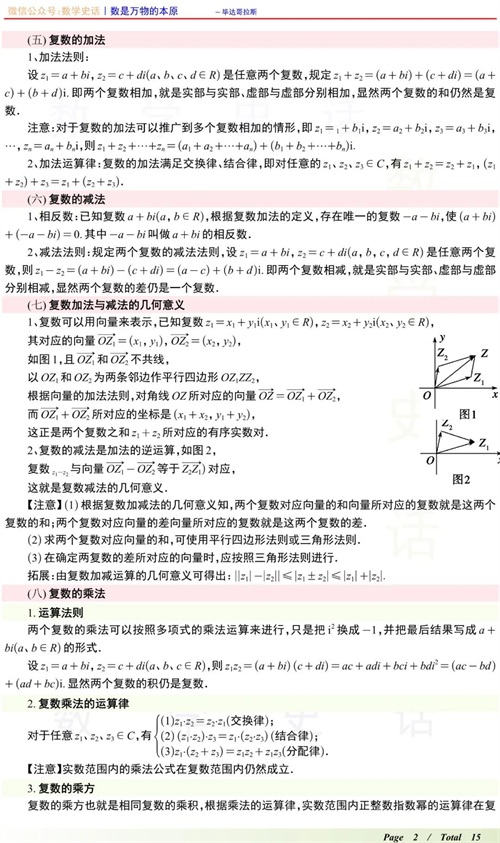 微信公众号:数学史话 | 数是万物的本原 ～毕达哥拉斯
(五) 复数的加法
1、加法法则:
设 z₁ = a + bi, z₂ = c + di(a、b、c、d ∈ R) 是任意两个复数, 规定 z₁ + z₂ = (a + bi) + (c + di) = (a +
c) + (b + d)i. 即两个复数相加, 就是实部与实部、虚部与虚部分别相加, 显然两个复数的和仍然是复
数.
注意: 对于复数的加法可以推广到多个复数相加的情形, 即 z₁ = ₁ + b₁i, z₂ = a₂ + b₂i, z₃ = a₃ + b₃i,
⋯, zₙ = aₙ + bₙi, 则 z₁ + z₂ + ⋯ + zₙ = (a₁ + a₂ + ⋯ + aₙ) + (b₁ + b₂ + ⋯ + bₙ)i.
2、加法运算律: 复数的加法满足交换律、结合律, 即对任意的 z₁、z₂、z₃ ∈ C, 有 z₁ + z₂ = z₂ + z₁, (z₁
+ z₂) + z₃ = z₁ + (z₂ + z₃).
(六) 复数的减法
1、相反数: 已知复数 a + bi(a, b ∈ R), 根据复数加法的定义, 存在唯一的复数 −a − bi, 使 (a + bi)
+ (−a − bi) = 0. 其中 −a − bi 叫做 a + bi 的相反数.
2、减法法则: 规定两个复数的减法法则, 设 z₁ = a + bi, z₂ = c + di(a, b, c, d ∈ R) 是任意两个复
数, 则 z₁ − z₂ = (a + bi) − (c + di) = (a − c) + (b + d)i. 即两个复数相减, 就是实部与实部、虚部与虚部
分别相减, 显然两个复数的差仍是一个复数.
(七) 复数加法与减法的几何意义
1、复数可以用向量来表示, 已知复数 z₁ = x₁ + y₁i(x₁、y₁ ∈ R), z₂ = x₂ + y₂i(x₂、y₂ ∈ R),
其对应的向量 OZ₁ = (x₁, y₁), OZ₂ = (x₂, y₂),
如图 1, 且 OZ₁ 和 OZ₂ 不共线,
以 OZ₁ 和 OZ₂ 为两条邻边作平行四边形 OZ₁ZZ₂,
根据向量的加法法则, 对角线 OZ 所对应的向量 OZ = OZ₁ + OZ₂,
而 OZ₁ + OZ₂ 所对应的坐标是 (x₁ + x₂, y₁ + y₂),
这正是两个复数之和 z₁ + z₂ 所对应的有序实数对.
2、复数的减法是加法的逆运算, 如图 2,
复数 z₁−z₂ 与向量 OZ₁ − OZ₂ 等于 Z₂Z₁) 对应,
这就是复数减法的几何意义.
y
Z₂
Z
Z₁
O
x
图1
Z₂
Z₁
O
x
图2
【注意】(1) 根据复数加减法的几何意义知, 两个复数对应向量的和向量所对应的复数就是这两个
复数的和; 两个复数对应向量的差向量所对应的复数就是这两个复数的差.
(2) 求两个复数对应向量的和, 可使用平行四边形法则或三角形法则.
(3) 在确定两复数的差所对应的向量时, 应按照三角形法则进行.
拓展: 由复数加减运算的几何意义可得出: ||z₁| − |z₂|| ⩽ |z₁ ± z₂| ⩽ |z₁| + |z₂|.
(八) 复数的乘法
1. 运算法则
两个复数的乘法可以按照多项式的乘法运算来进行, 只是把 i² 换成 −1, 并把最后结果写成 a +
bi(a、b ∈ R) 的形式.
设 z₁ = a + bi, z₂ = c + di(a、b、c、d ∈ R), 则 z₁z₂ = (a + bi) (c + di) = ac + adi + bci + bdi² = (ac − bd)
+ (ad + bc)i. 显然两个复数的积仍是复数.
2. 复数乘法的运算律
(1)z₁·z₂ = z₂·z₁(交换律);
对于任意 z₁、z₂、z₃ ∈ C, 有 (2) (z₁·z₂)·z₃ = z₁·(z₂·z₃) (结合律);
(3)z₁·(z₂ + z₃) = z₁z₂ + z₁z₃(分配律).
【注意】实数范围内的乘法公式在复数范围内仍然成立.
3. 复数的乘方
复数的乘方也就是相同复数的乘积, 根据乘法的运算律, 实数范围内正整数指数幂的运算律在复
Page 2 / Total 15